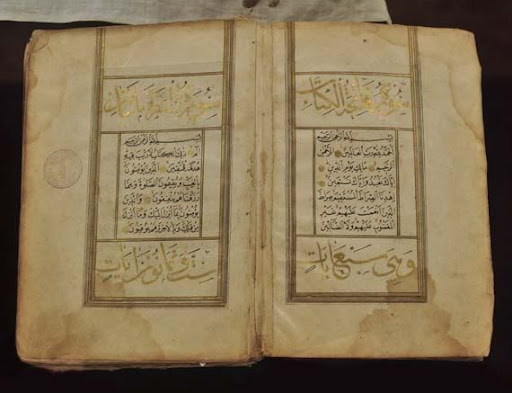 سورة فاتحة الكتاب
بسم الله الرحمن الرحيم
الحمد لله رب العالمين الرحمن
الرحيم مالك يوم الدين
اياك نعبد واياك نستعين
اهدنا الصراط المستقيم صراط
الذين انعمت عليهم غير
المغضوب عليهم ولا الضالين
وهي سبع آيات
سورة البقرة مائتان
بسم الله الرحمن الرحيم
الم ذلك الكتاب لا ريب فيه
هدى للمتقين الذين يؤمنون
بالغيب ويقيمون الصلوة ومما
رزقناهم ينفقون والذين
يؤمنون بما انزل اليك وما انزل
من قبلك وبالاخرة هم يوقنون
ست وثمانون آيات